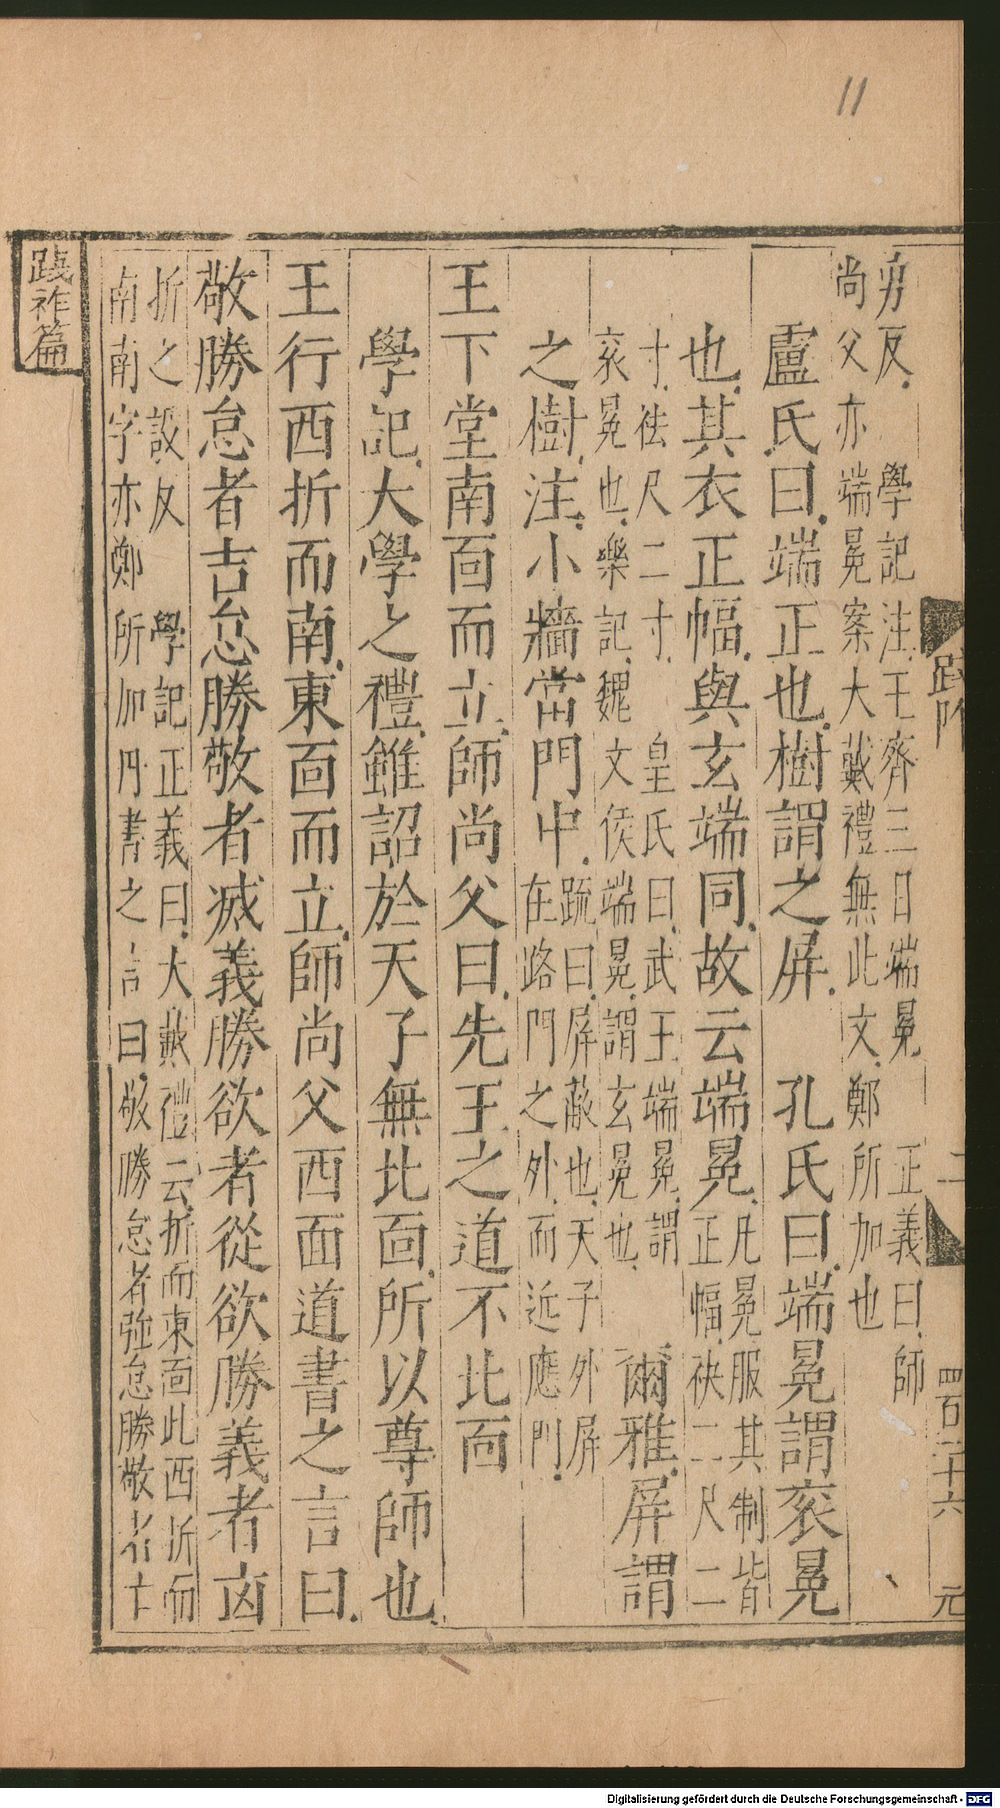 11
踐阼
二
四百二十六
元
反 學記注王齊三日端冕 正義曰師
尚父亦端冕案大戴禮無此文鄭所加也
盧氏曰端正也樹謂之屏 孔氏曰端冕謂衮冕
也其衣正幅與玄端同故云端冕
凡冕服其制皆
正幅袂二尺二
寸袪尺二寸 皇氏曰武王端冕謂
衮冕也樂記魏文侯端冕謂玄冕也
爾雅屏謂
之樹注小牆當門中
疏曰屏蔽也天子外屏
在路門之外而近應門
王下堂南靣而立師尚父曰先王之道不北靣
學記大學之禮雖詔於天子無北靣所以尊師也
王行西折而南東靣而立師尚父西面道書之言曰
敬勝怠者吉怠勝敬者滅義勝欲者從欲勝義者凶
折之設反 學記正義曰大戴禮云折而東靣此西折而
南南字亦鄭所加丹書之言曰敬勝怠者強怠勝敬者亡
踐祚篇
Digitalisierung gefördert durch die Deutsche Forschungsgemeinschaft - DFG